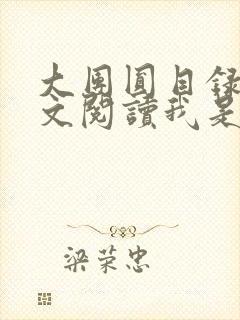 大團圓目錄
文閱讀我是
梁荣忠